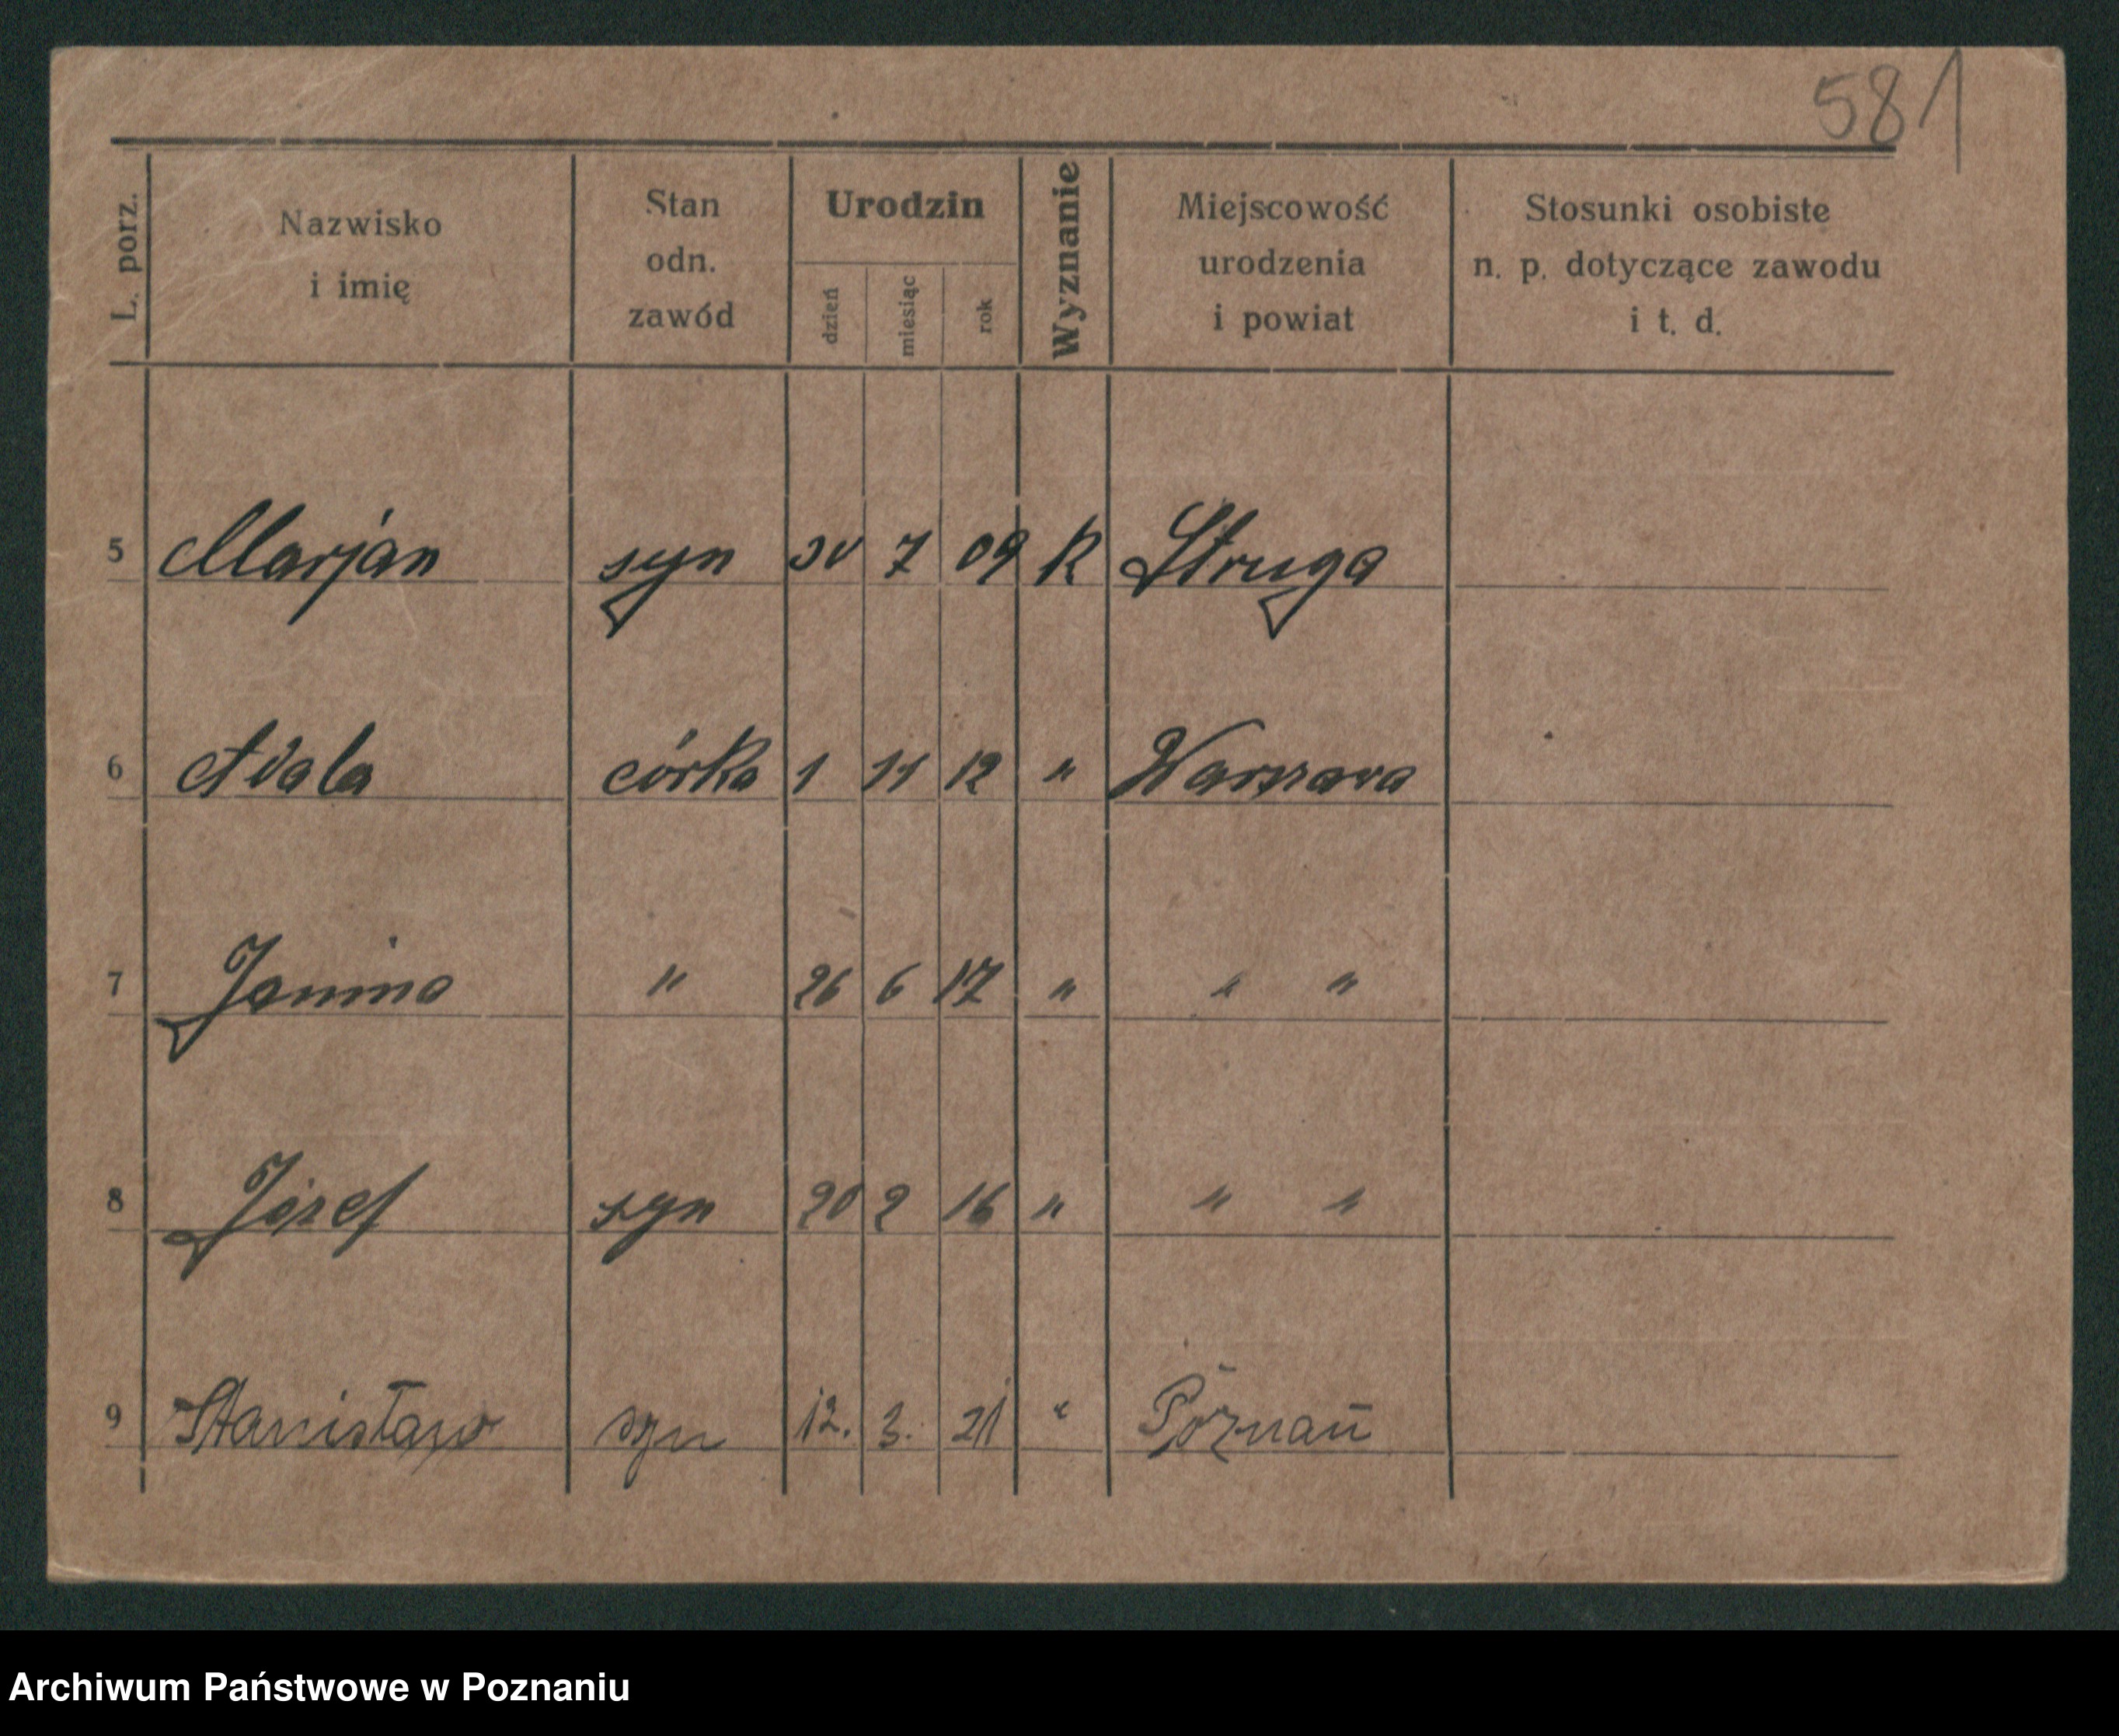 581
L. porz. Nazwisko i imię Stan odn. zawód Urodzin dzień miesiąc rok Wyznanie Miejscowość urodzenia i powiat Stosunki osobiste n. p. dotyczące zawodu i t. d.
5 Marjan syn 30 7 09 K Struga
6 Adala córka 1 11 12 " Warszawa
7 Janina " 26 6 17 " " "
8 Józef syn 20 2 16 " " "
9 Stanisław syn 12. 3. 21 " Poznań
Archiwum Państwowe w Poznaniu